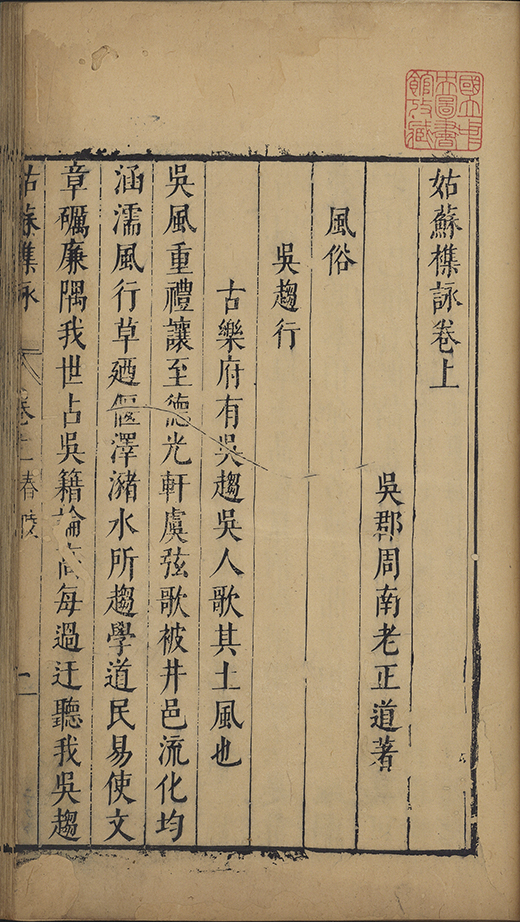 姑蘇襍詠卷上
吳郡周南老正道著
風俗
吳趨行
古樂府有吳趨吳人歌其土風也
吳風重禮讓至德光軒虞弦歌被井邑流化均
涵濡風行草廼偃澤瀦水所趨學道民易使文
章礪廉隅我世占吳籍論高每過迂聽我吳趨
姑蘇襍詠
卷上
國立中央圖書館收藏